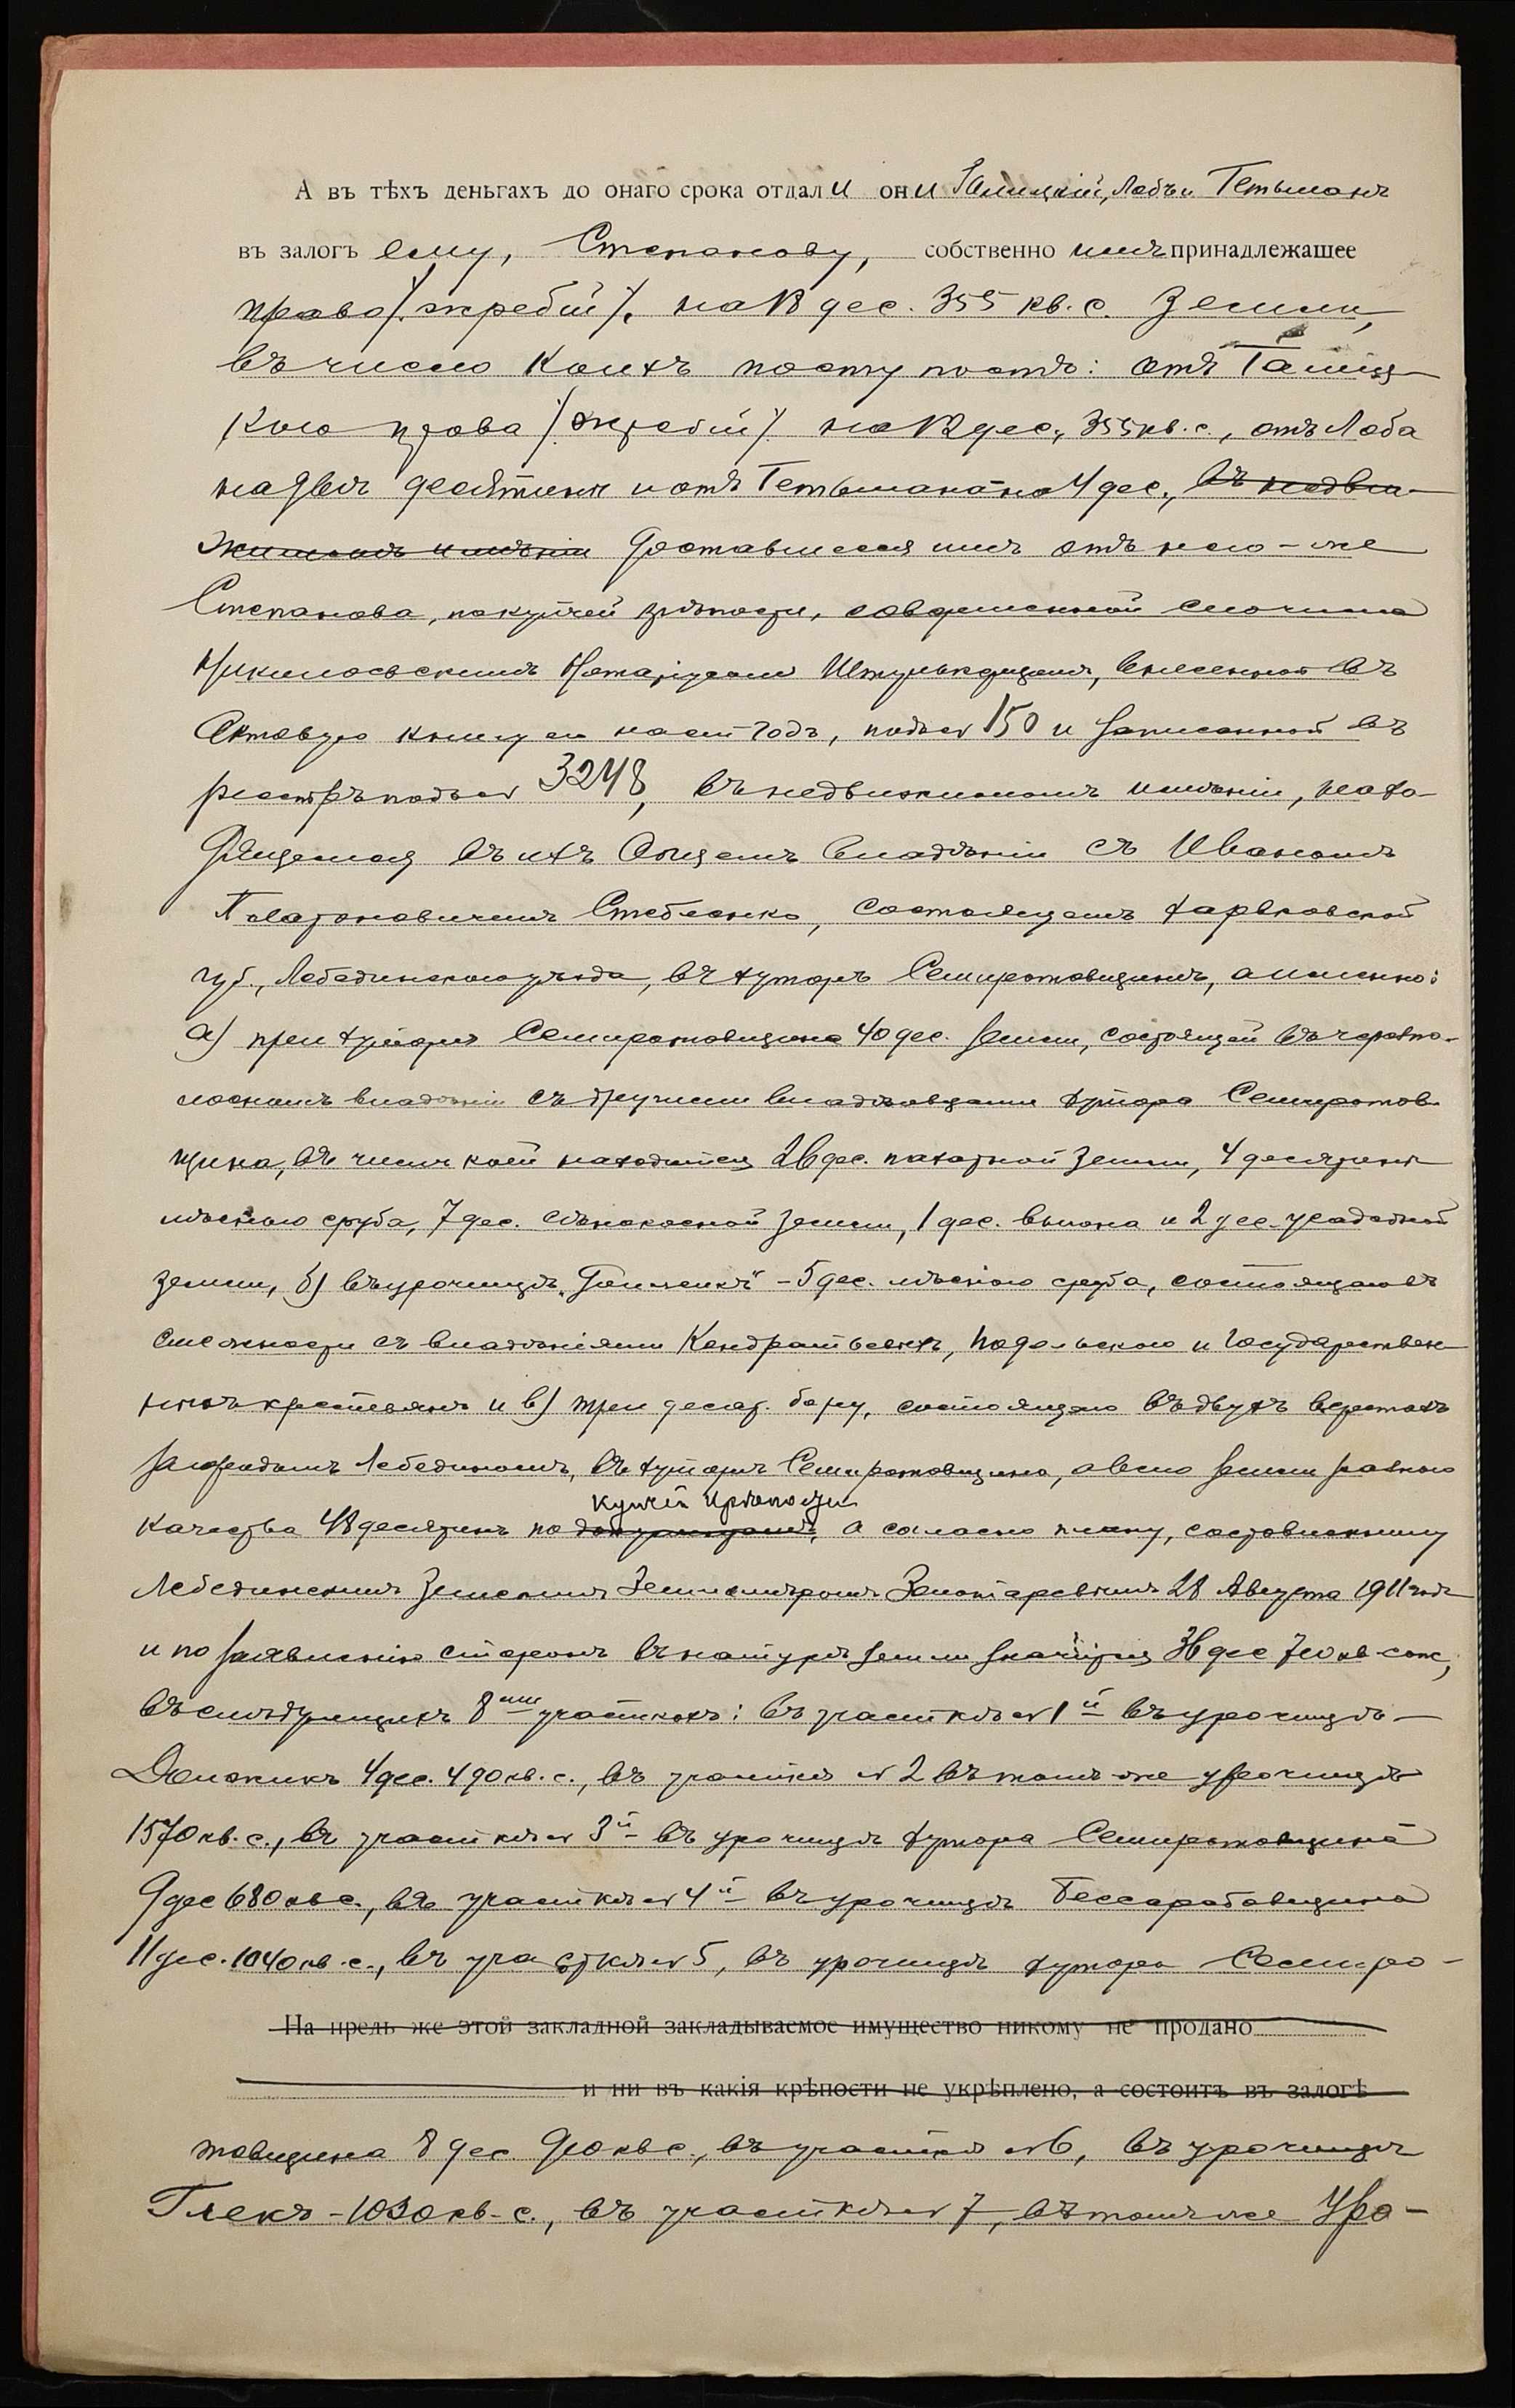 А въ тѣхъ деньгахъ до онаго срока отдали они Галицкій, Лабъ и Гетьманъ
въ залогъ ему, Степанову, собственно имъ принадлежащее
право /жребій/, на 18 дес. 355 кв. с. земли,
въ число коихъ поступаютъ: отъ Галиц-
каго права /жребій/ на 12 дес., 355 кв. с., отъ Лаба
на двѣ десятины и отъ Гетьмана на 4 дес., въ недви-
жимомъ имѣніи доставшееся имъ отъ него-же
Степанова, по купчей крѣпости, совершенной сего числа
Нотаріусомъ внесенной въ
Актовую книгу на сей годъ, подъ № 150 и записанной въ
реестръ подъ № 3248, въ недвижимомъ имѣніи, нахо-
дящемся въ ихъ общемъ владѣніи съ Иваномъ
Платоновичемъ Стебленко, состоящемъ Харьковской
губ., Лебединскаго уѣзда, въ хуторѣ Семиротовщинѣ, а именно:
а) при хуторѣ Семиротовщина 40 дес. земли, состоящей въ черезпо-
лосномъ владѣніи съ другими владѣльцами хутора Семиротов-
щина, въ числѣ коей находится 26 дес. пахатной земли, 4 десятины
лѣсного сруба, 7 дес. сѣнокосной земли, 1 дес. выгона и 2 дес. усадебной
земли, б) въ урочищѣ - 5 дес. лѣсного сруба, состоящаго въ
смежности съ владѣніями Кондратьевыхъ, Подольскаго и государствен-
ныхъ крестьянъ и в) три десят. бору, состоящаго въ двухъ верстахъ
за городомъ Лебединомъ, въ хуторѣ Семиротовщина, а всего земли разнаго
купчей крѣпости
качества 48 десятинъ по документамъ, а согласно плану, составленному
Лебединскимъ Земскимъ Землемѣромъ Золотаревымъ 28 Августа 1911 года
и по заявленію сторонъ въ натурѣ земли значится 36 дес 710 кв. саж,
въ слѣдующихъ 8ми участкахъ: въ участкѣ № 1й въ урочищѣ -
Должикъ 4 дес. 490 кв. с., въ участкѣ № 2 въ томъ-же урочищѣ
1570 кв. с., въ участкѣ № 3й - въ урочищѣ хутора Семиротовщина
9 дес 680 кв с., въ участкѣ № 4й - въ урочищѣ Бессарабовщина
11 дес. 1040 кв. с., въ участкѣ № 5, въ урочищѣ хутора Семиро-
На предь же этой закладной закладываемое имущество никому не продано
и ни въ какія крѣпости не укрѣплено, а состоитъ въ залогѣ
товщина 8 дес. 910 кв с., въ участкѣ № 6, въ урочищѣ
Глекъ - 1030 кв. с., въ участкѣ № 7, въ томъ же Уро-